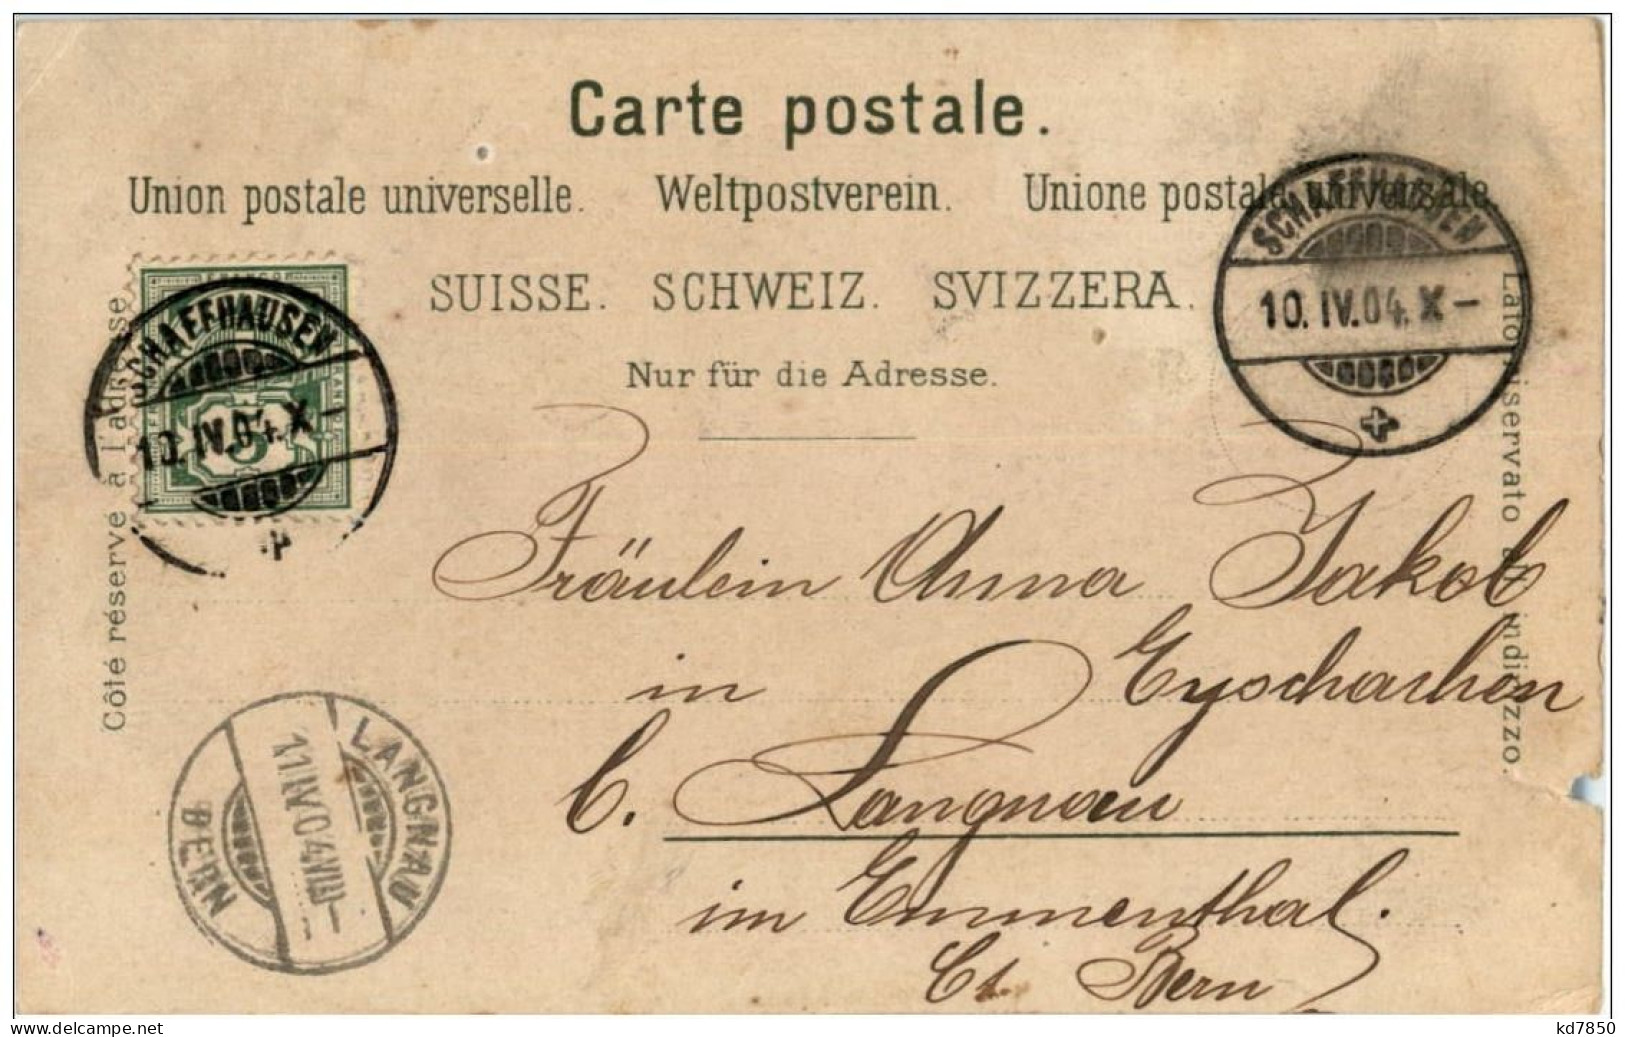 Carte postale.
Union postale universelle. Weltpostverein. Unione postale universale
SUISSE. SCHWEIZ. SVIZZERA.
Nur für die Adresse.
Côté réservé à l'adresse
Lato riservato all' indirizzo.
SCHAFFHAUSEN
10. IV. 04. X –
SCHAFFHAUSEN
10. IV. 04. X –
Fräulein Anna Jakob
in Eyschachen
b. Langnau
im Emmenthal.
Ct. Bern
LANGNAU
11 IV 04 VIII –
BERN
www.delcampe.net
kd7850